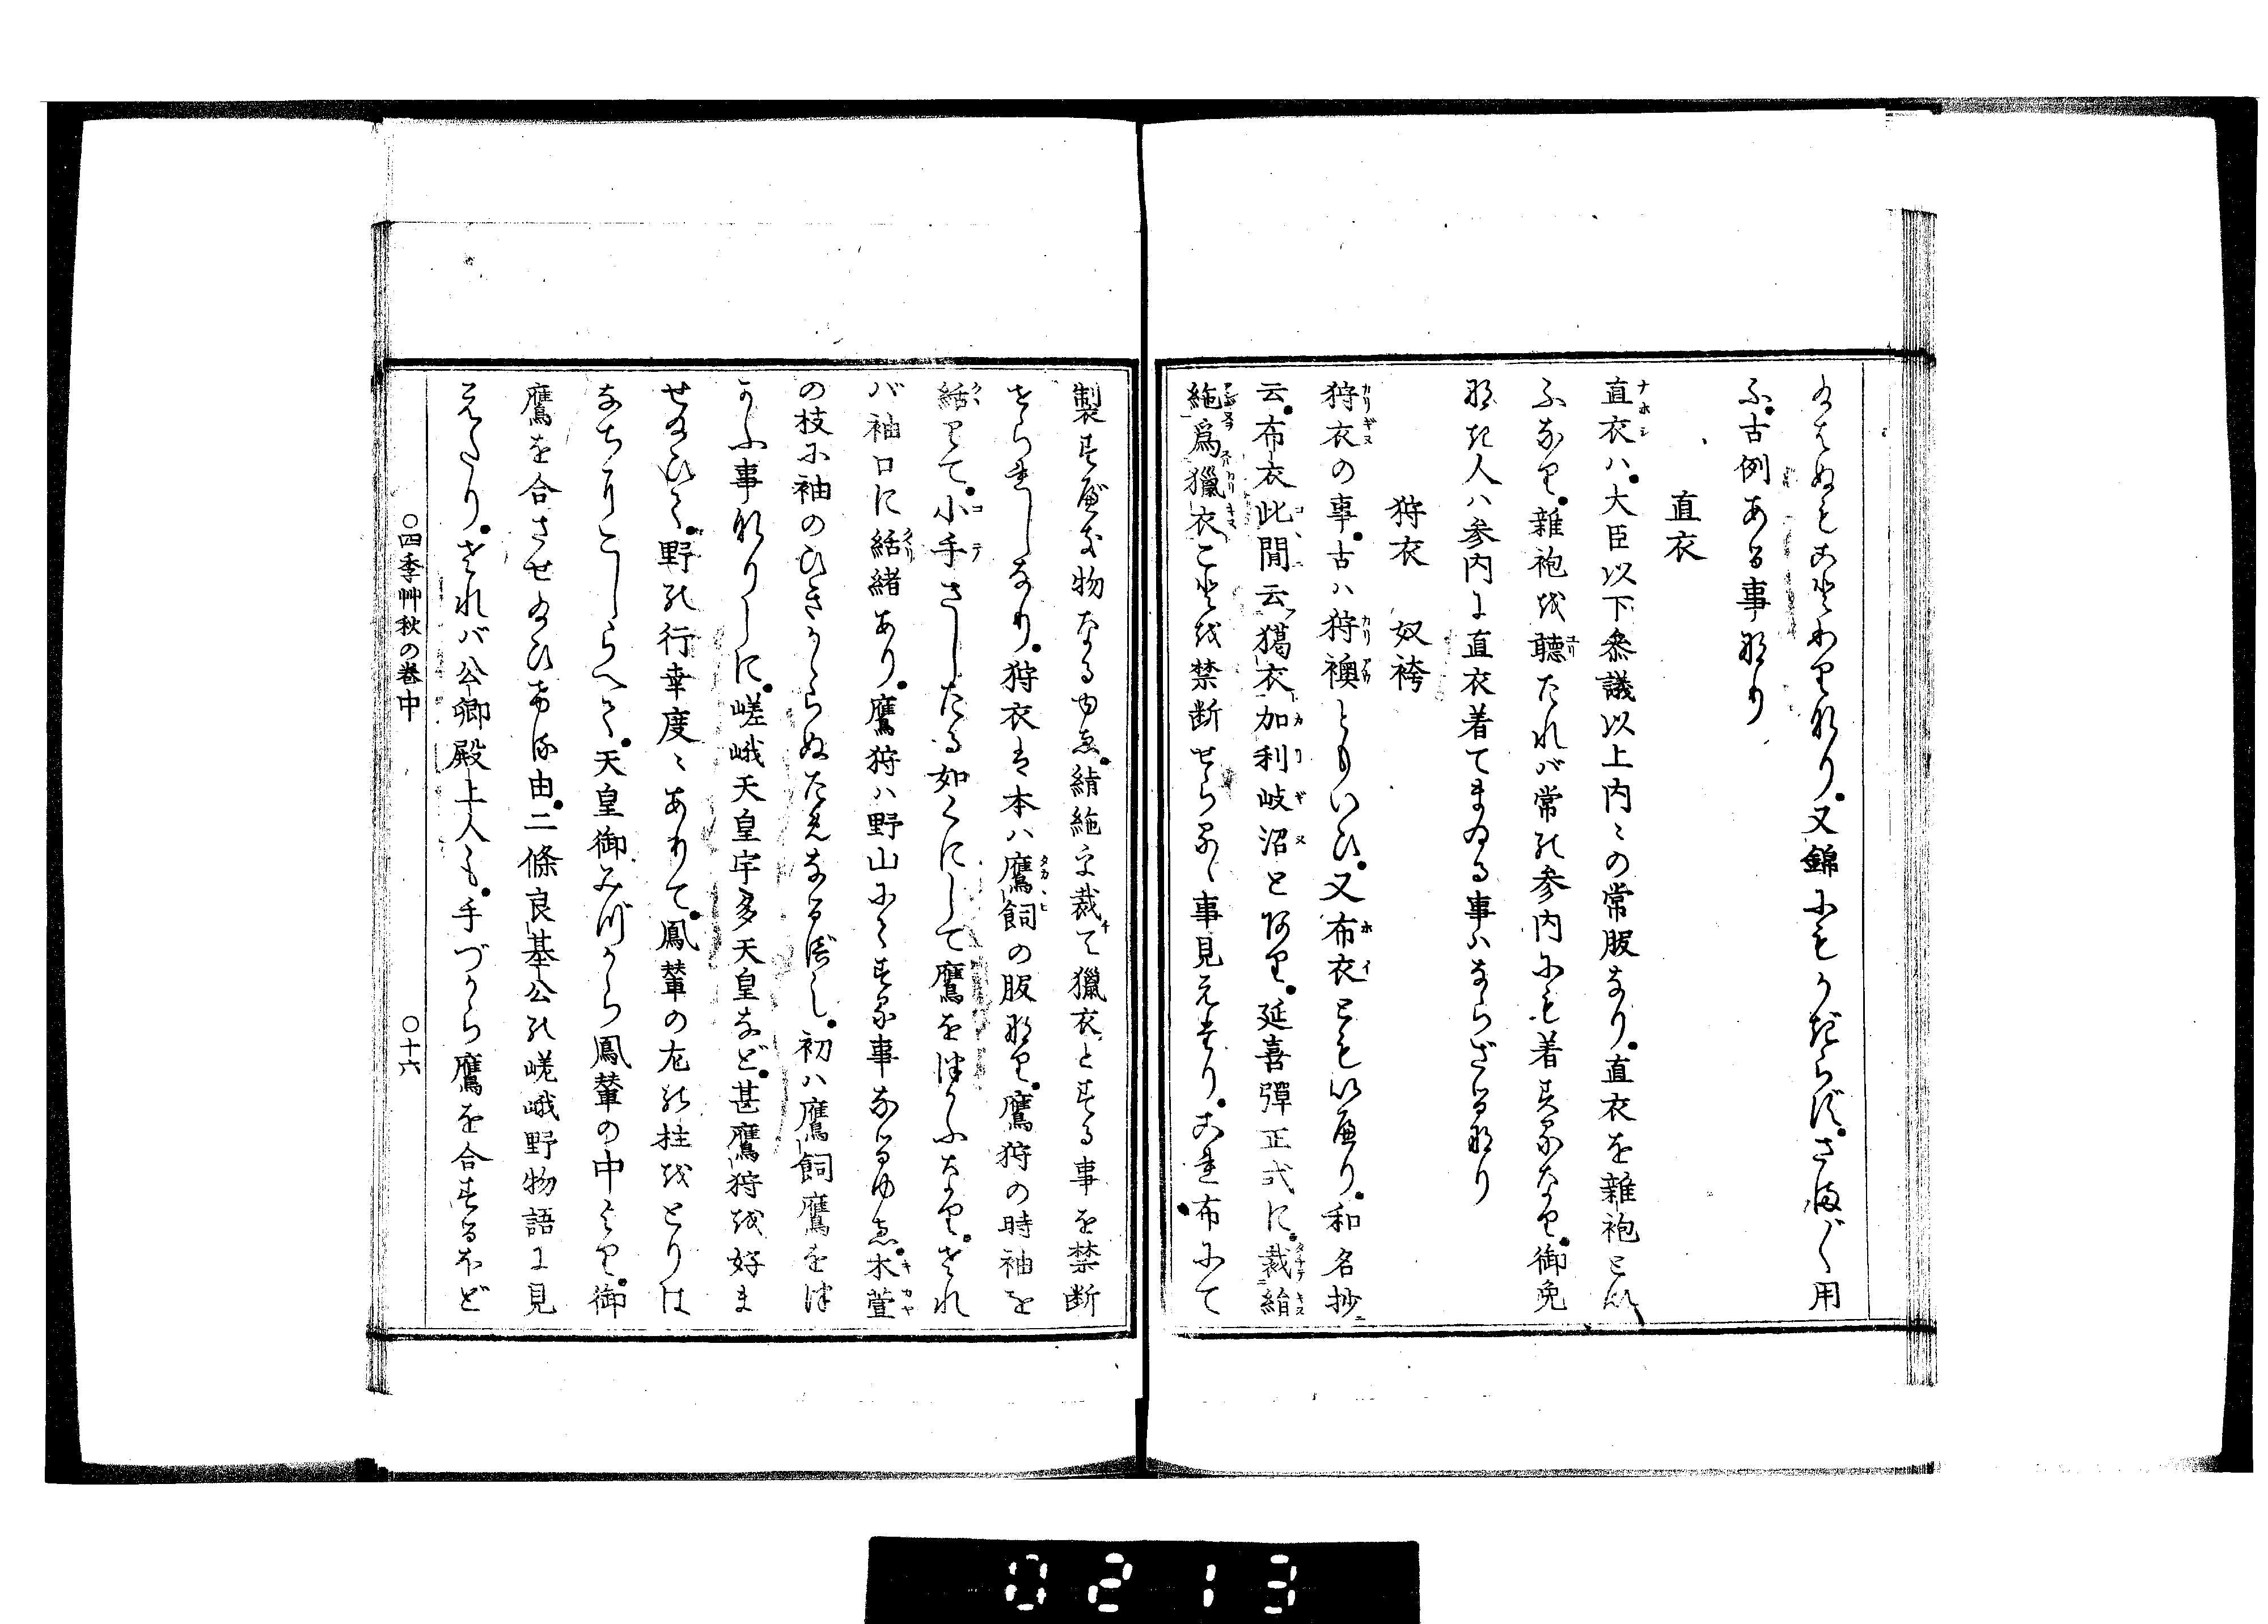 給はぬもことわりなり。又錦にもかぎらず。さま〴〵用
ふ。古例ある事なり
直衣
直衣ハ。大臣以下参議以上内〻の常服なり。直衣を雑袍とい
ふなり。雑袍を聴たれバ常の参内にも着するなり。御免
なき人ハ参内に直衣着てまゐる事ハならざるなり
狩衣 奴袴
狩衣の事。古ハ狩襖ともいひ。又布衣ともいへり。和名抄ニ
云。布衣此間云獦衣加利岐沼とあり。延喜彈正式に。裁絹
絁爲獵衣ことを禁断せらるゝ事見えたり。これ布にて
製すべき物なる由ゑ。絹絁を裁て獵衣とする事を禁断
せられしなり。狩衣は本ハ鷹飼の服なり。鷹狩の時袖を
結りて。小手さしたる如くにして鷹をつかふなり。され
バ袖口に結緒あり。鷹狩ハ野山にてする事なるゆゑ。木萱
の枝に袖のひきかゝらぬためなるべし。初ハ鷹飼鷹をつ
かふ事なりしに。嵯峨天皇宇多天皇など。甚鷹狩を好ま
せ給ひて。野の行幸度〻ありて。鳳輦の左の柱をとりは
なちにこしらへて。天皇御みづから鳳輦の中より。御
鷹を合させ給ひける由。二條良基公の嵯峨野物語に見
えたり。されバ公卿殿上人も。手づから鷹を合するほど
○四季艸秋の巻中 ○十六
0213